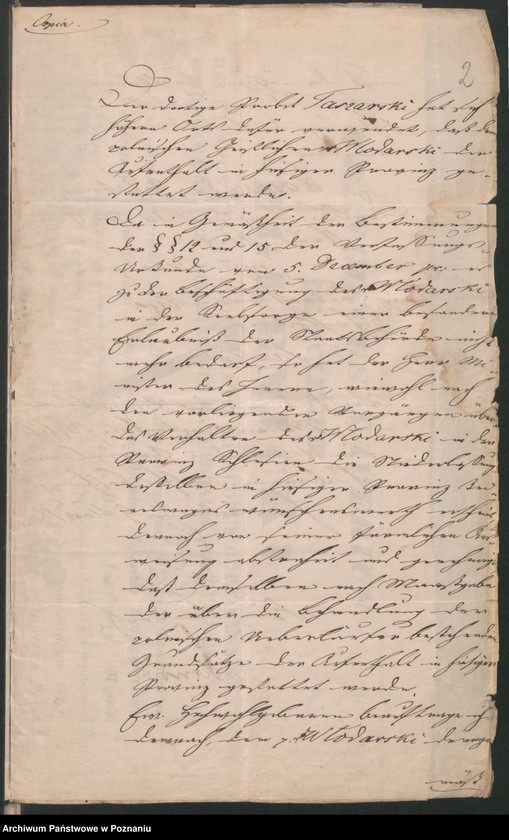 Copia.
2
Der dortige Probst Taszarski hat sich
höhern Orts dafür verwendet, daß dem
polnischen Geistlichen Wlodarski der
Aufenthalt in hiesiger Provinz ge-
stattet werde.
Da in Gemäßheit der Bestimmungen
der §§ 12 und 15 der Verfassungs-
Urkunde vom 5. December pr. es
zu der Beschäftigung des Wlodarski
in der Seelsorge einer besondern
Erlaubniß der Staatsbehörde nicht
mehr bedarf, so hat der Herr Mi-
nister des Innern, wiewohl nach
den vorliegenden Vorgängen über
das Verhalten des Wlodarski in der
Provinz Schlesien die Niederlassung
desselben in hiesiger Provinz
wünschenswerth
dennoch von seiner
abstrahirt und genehmigt
daß demselben nach Maaßgabe
der über die Behandlung der
polnischen Ueberläufer bestehenden
Grundsätze der Aufenthalt in hiesiger
Provinz gestattet werde.
Ew. Hochwohlgeboren beauftrage ich
demnach, den p. Wlodarski demge-
mäß
Archiwum Państwowe w Poznaniu